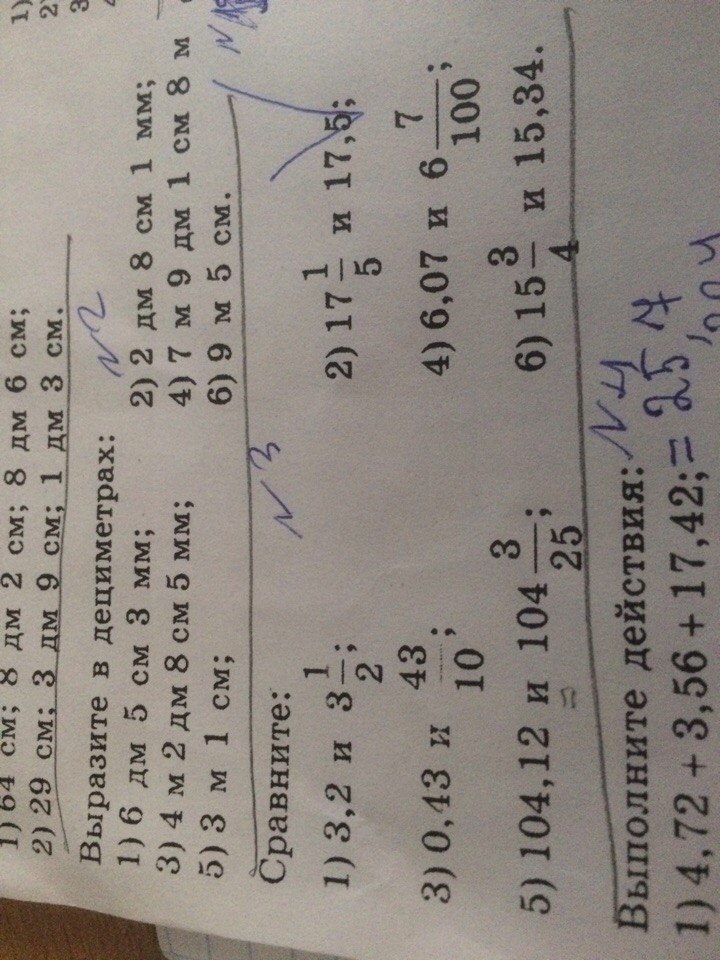 1) 64 см; 8 дм 2 см; 8 дм 6 см;
2) 29 см; 3 дм 9 см; 1 дм 3 см.
Выразите в дециметрах: N2
1) 6 дм 5 см 3 мм; 2) 2 дм 8 см 1 мм;
3) 4 м 2 дм 8 см 5 мм; 4) 7 м 9 дм 1 см 8 м
5) 3 м 1 см; 6) 9 м 5 см.
Сравните: N3
1) 3,2 и 3 1/2; 2) 17 1/5 и 17,5;
3) 0,43 и 43/10; 4) 6,07 и 6 7/100;
5) 104,12 и 104 3/25; 6) 15 3/4 и 15,34.
=
Выполните действия: N4
1) 4,72 + 3,56 + 17,42; = 25,7